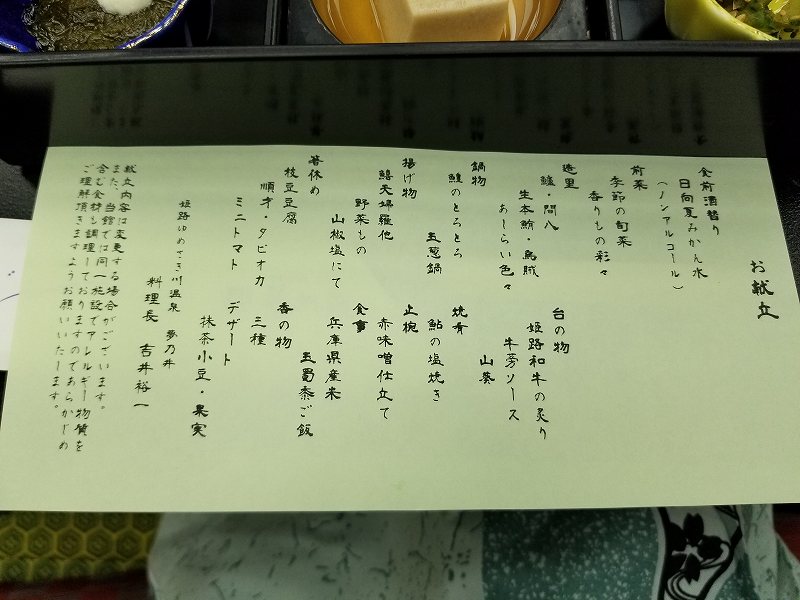 お献立
食前酒替り
日向夏みかん水
(ノンアルコール)
前菜
季節の旬菜
香りもの彩々
造里
鱧・間八
生本鮪・烏賊
あしらい色々
鍋物
鱧のとろとろ
玉葱鍋
揚げ物
鱚天婦羅他
野菜もの
山椒塩にて
箸休め
枝豆豆腐
順才・タピオカ
ミニトマト
台の物
姫路和牛の炙り
牛蒡ソース
山葵
焼肴
鮎の塩焼き
止椀
赤味噌仕立て
食事
兵庫県産米
玉蜀黍ご飯
香の物
三種
デザート
抹茶小豆・果実
姫路ゆめさき川温泉 夢乃井
料理長 吉井裕一
献立内容は変更する場合がございます。
また、当館では同一施設でアレルギー物質を
含む食材も調理しておりますのであらかじめ
ご理解頂きますようお願いいたします。